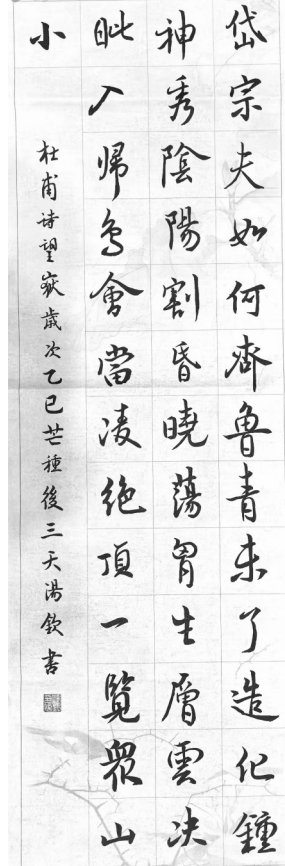 岱宗夫如何齊魯青未了造化鍾
神秀陰陽割昏曉蕩胷生層雲决
眦入帰鳥會當凌絶頂一覽眾山
小
杜甫诗望嶽歲次乙巳芒種後三天湯欽書